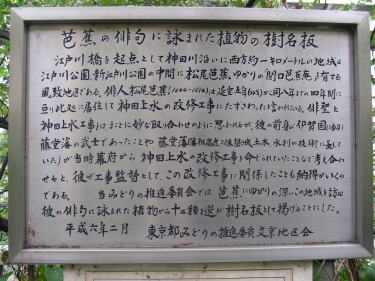 芭蕉の俳句に詠まれた植物の樹名板
江戸川橋を起点として神田川沿いに西方約一キロメートルの地域は
江戸川公園、新江戸川公園の中間に松尾芭蕉ゆかりの関口芭蕉庵を有する
風致地区である。俳人松尾芭蕉(1644-1694)は延宝五年から延宝八年までの四年間に
亘り此処に居住して神田上水の改修工事にたずさわったと言われる。俳聖と
神田上水工事とはまことに妙な取り合わせのように思われるが、彼の前身が伊賀国
藤堂藩の武士であったことや藤堂藩が築城、土木、水利の技術に長じて
いたが当時幕府から神田上水の改修工事を命ぜられていたことなど考え合
せると、彼が工事監督として、この改修工事に関係したことも納得がいくの
である。 当みどりの推進委員会では、芭蕉にゆかりの深いこの地域を訪ね
彼の俳句に詠まれた植物から十二種を選び樹名板として掲げることにした。
平成六年二月 東京都みどりの推進委員文京地区会